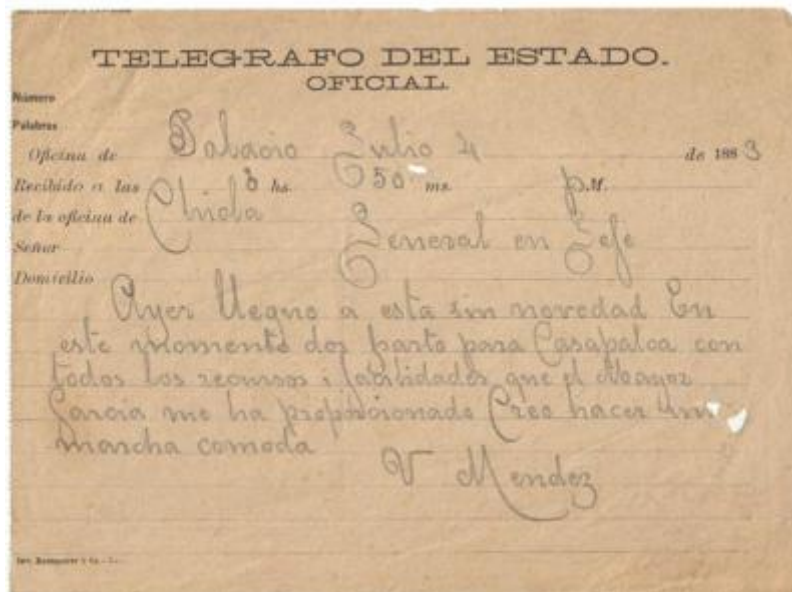 TELEGRAFO DEL ESTADO.
OFICIAL
Número
Palabras
Oficina de Palacio Julio 4 de 1883
Recibido a las 3 hs. 50 ms. p.M.
de la oficina de Chicla
Señor General en Jefe
Domicilio
Ayer llegue a esta sin novedad En
este momento dos parto para Casapalca con
todos los recursos i facilidades que el Mayor
Garcia me ha proporcionado Creo hacer una
marcha comoda
V Mendez